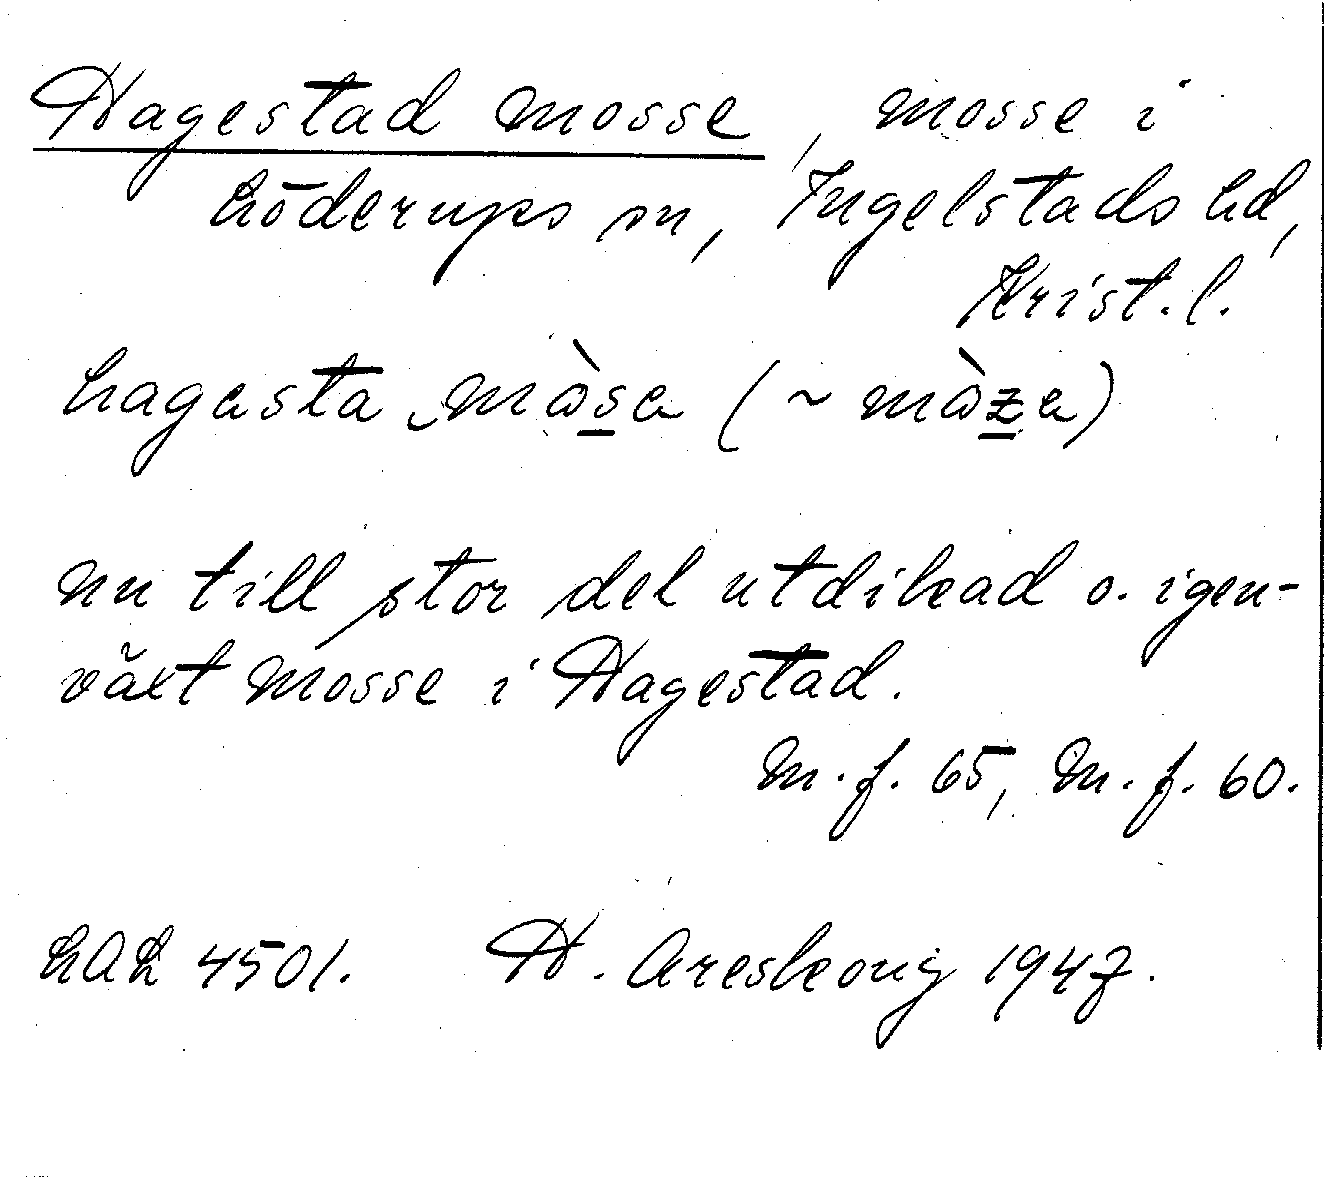 Hagestad mosse, mosse i
Löderups sn, Ingelstads hd,
Krist. l.
hagesta mòse (~ mòze)
nu till stor del utdikad o. igen-
växt mosse i Hagestad.
M. f. 65, M. f. 60.
LAL 4501. H. Areskoug 1947.